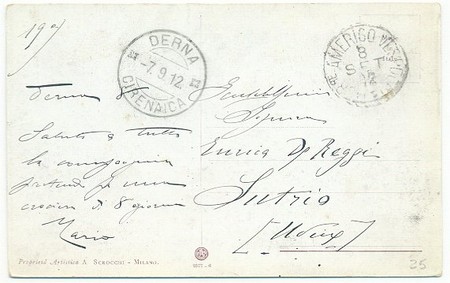 197
DERNA
-7.9.12
CIRENAICA
Rª AMERIGO VESPUCCI
8
SET
12
Derna 8
Saluto a tutta
la compagnia
partendo per una
crociera di 8 giorni
Mario
Gentilissima
Signora
Enrica De Reggi
Sutrio
[Udine]
Proprietà Artistica A. SCROCCHI - MILANO.
25